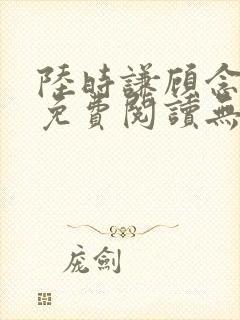 陸時謙顾念
免費閱讀無
庞劍